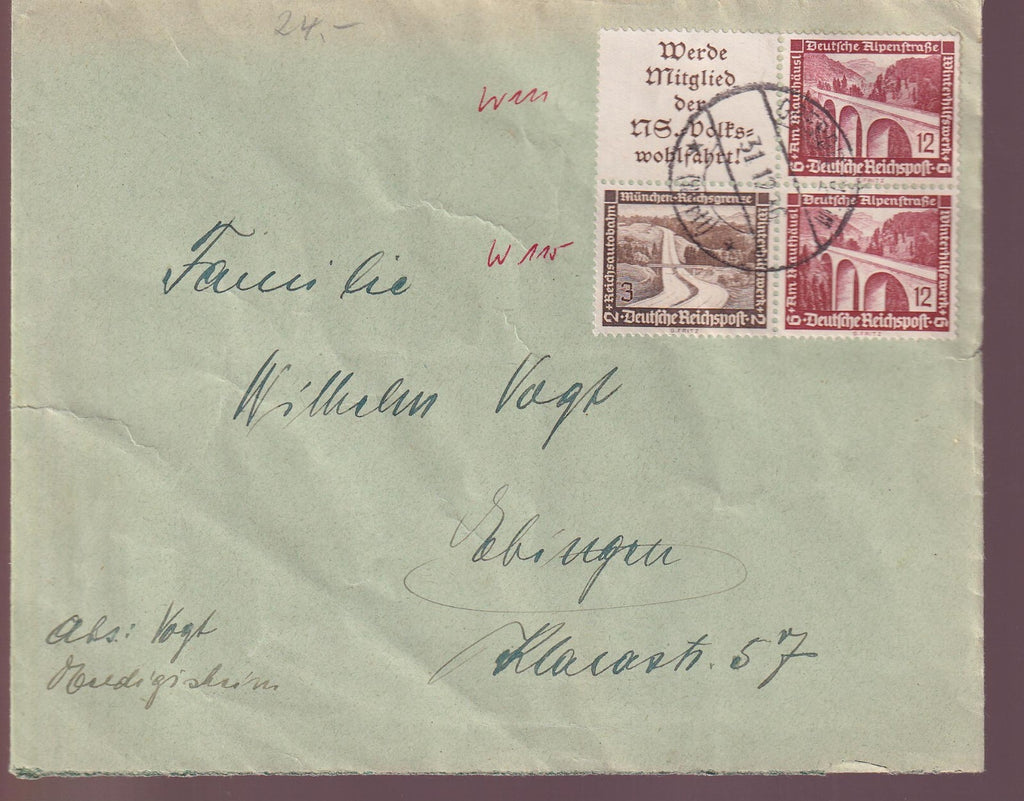 24.-
Werde
Mitglied
der
NS.-Volks=
wohlfahrt!
Deutsche Alpenstraße
6+Am Mauthäusl
Winterhilfswerk+6
12
Deutsche Reichspost
G.FRITZ
W 111
München-Reichsgrenze
2+Reichsautobahn
Winterhilfswerk+2
3
Deutsche Reichspost
G.FRITZ
Deutsche Alpenstraße
6+Am Mauthäusl
Winterhilfswerk+6
12
Deutsche Reichspost
G.FRITZ
31.12.36
W 115
Familie
Wilhelm Vogt
Ebingen
Klarastr. 57
Abs: Vogt